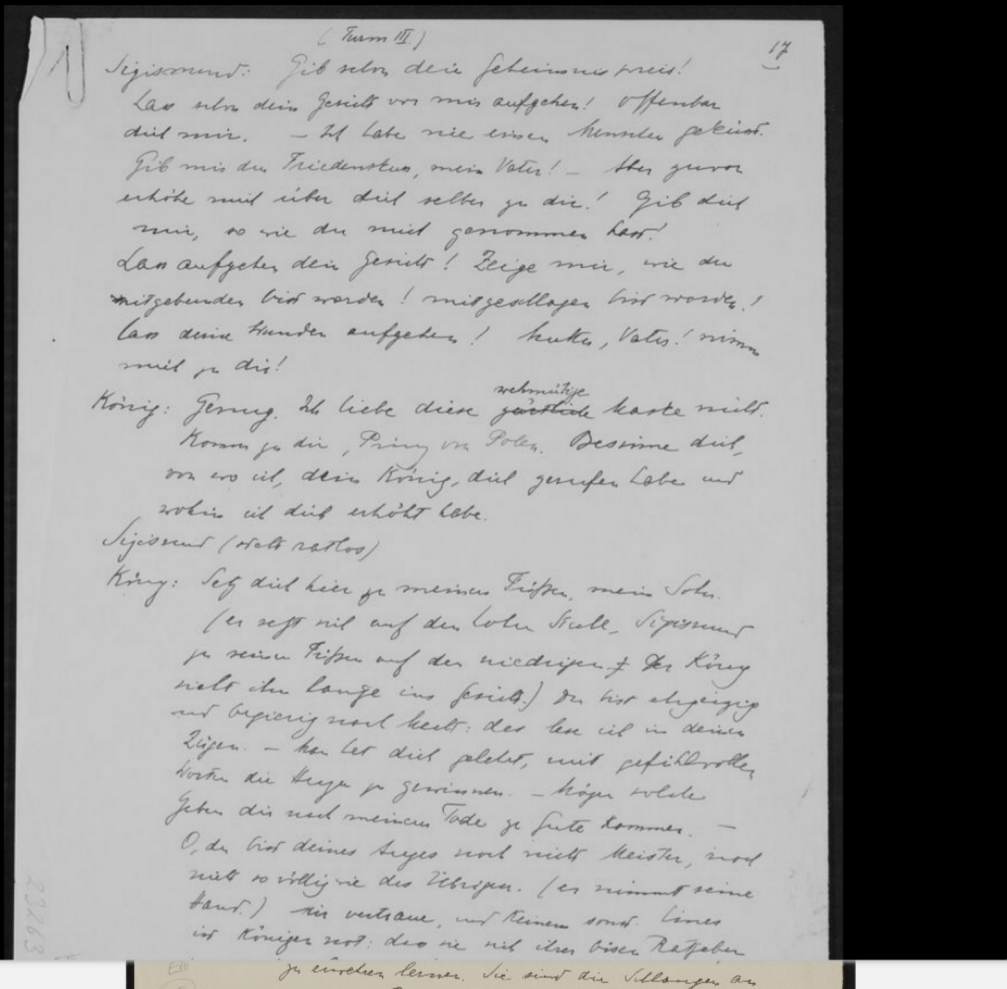 (Turm III)
17
Sigismund: Gib schon dein Geheimnis preis!
Lass schon dein Gesicht vor mir aufgehen! Offenbar
dich mir. – Ich habe nie einen Menschen geküsst.
Gib mir den Friedenskuss, mein Vater! – Aber zuvor
erhöhe mich über dich selber zu dir! Gib dich
mir, so wie du mich genommen hast!
Lass aufgehen dein Gesicht! Zeige mir, wie du
bist worden! mitgeschlagen bist worden!
lass deine Wunden aufgehen! Mutter, Vater! nimm
mich zu dir!
wehmütige
König: Genug. Ich liebe diese zärtliche Maske nicht.
Komm zu dir, Prinz von Polen. Besinne dich,
von wo ich, dein König, dich gerufen habe und
wohin ich dich erhöht habe.
Sigismund (steht ratlos)
König: Setz dich hier zu meinen Füßen, mein Sohn.
(er setzt sich auf den hohen Stuhl, Sigismund
zu seinen Füßen auf den niedrigen. Der König
sieht ihm lange ins Gesicht.) Du bist ehrgeizig
und begierig nach Macht: das lese ich in deinen
Zügen. – Man hat dich gelehrt, mit gefühlvollen
Worten die Herzen zu gewinnen. – Mögen solche
Gaben dir nach meinem Tode zu Gute kommen. –
O, du bist deines Auges noch nicht Meister, noch
nicht so völlig wie des Übrigen. (er nimmt seine
Hand.) mir vertraue, und keinem sonst. Eines
ist Königen not: dass sie sich ihrer bösen Ratgeber
zu lernen. Sie sind die Schlangen an
23263